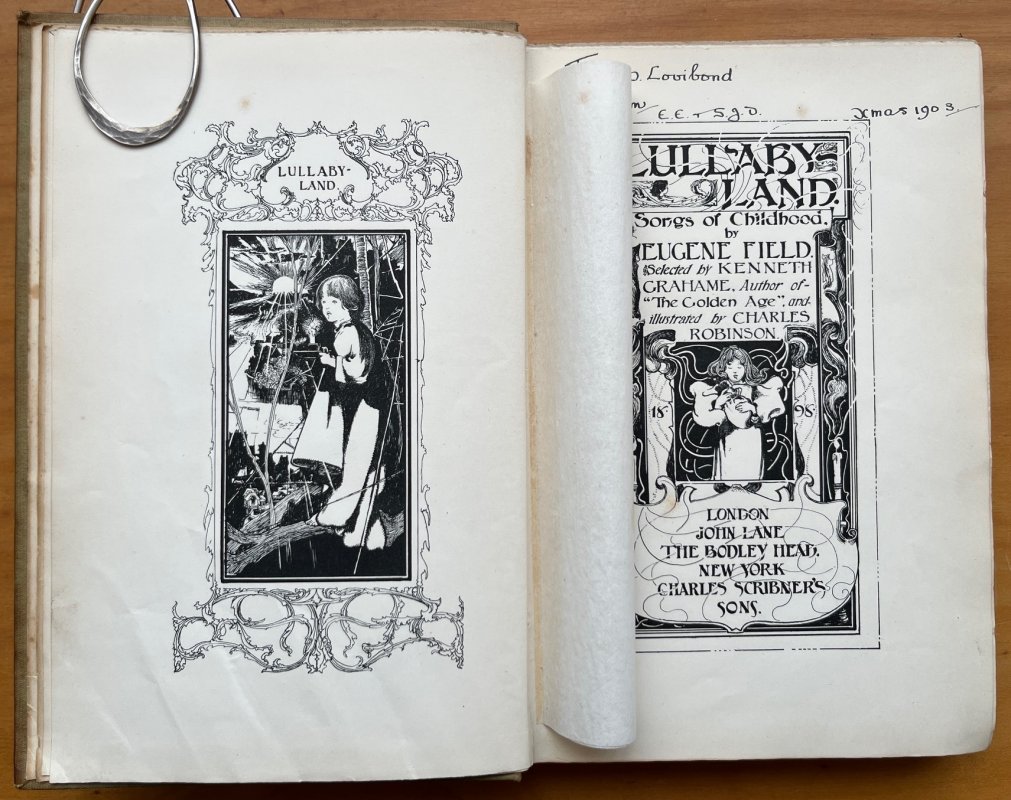 LULLABY-
LAND.
Lovibond
E.E. + S.J.D. Xmas 1903
LULLABY-
LAND.
Songs of Childhood.
by
EUGENE FIELD.
Selected by KENNETH
GRAHAME, Author of
"The Golden Age", and
illustrated by CHARLES
ROBINSON
18 98
LONDON
JOHN LANE
THE BODLEY HEAD.
NEW YORK
CHARLES SCRIBNER'S
SONS.